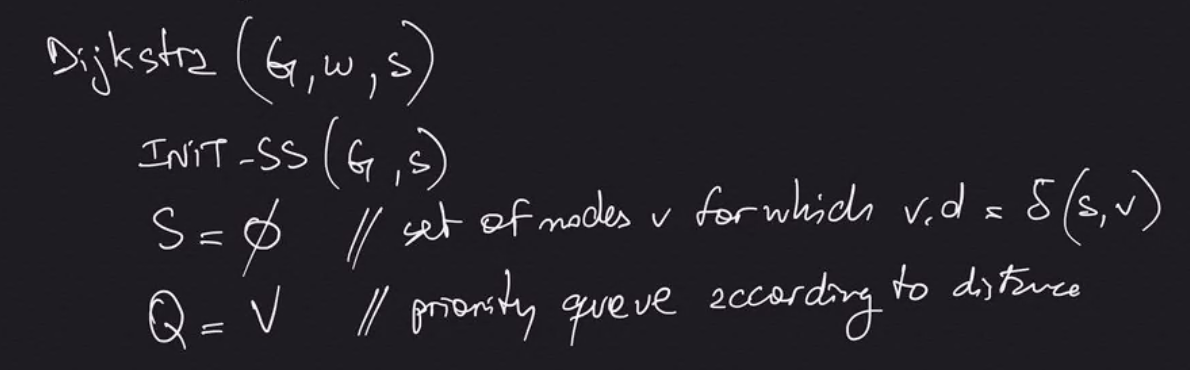 Dijkstra (G, w, s)
INIT-SS (G, s)
S = ∅ // set of nodes v for which v.d = δ(s, v)
Q = V // priority queue according to distance